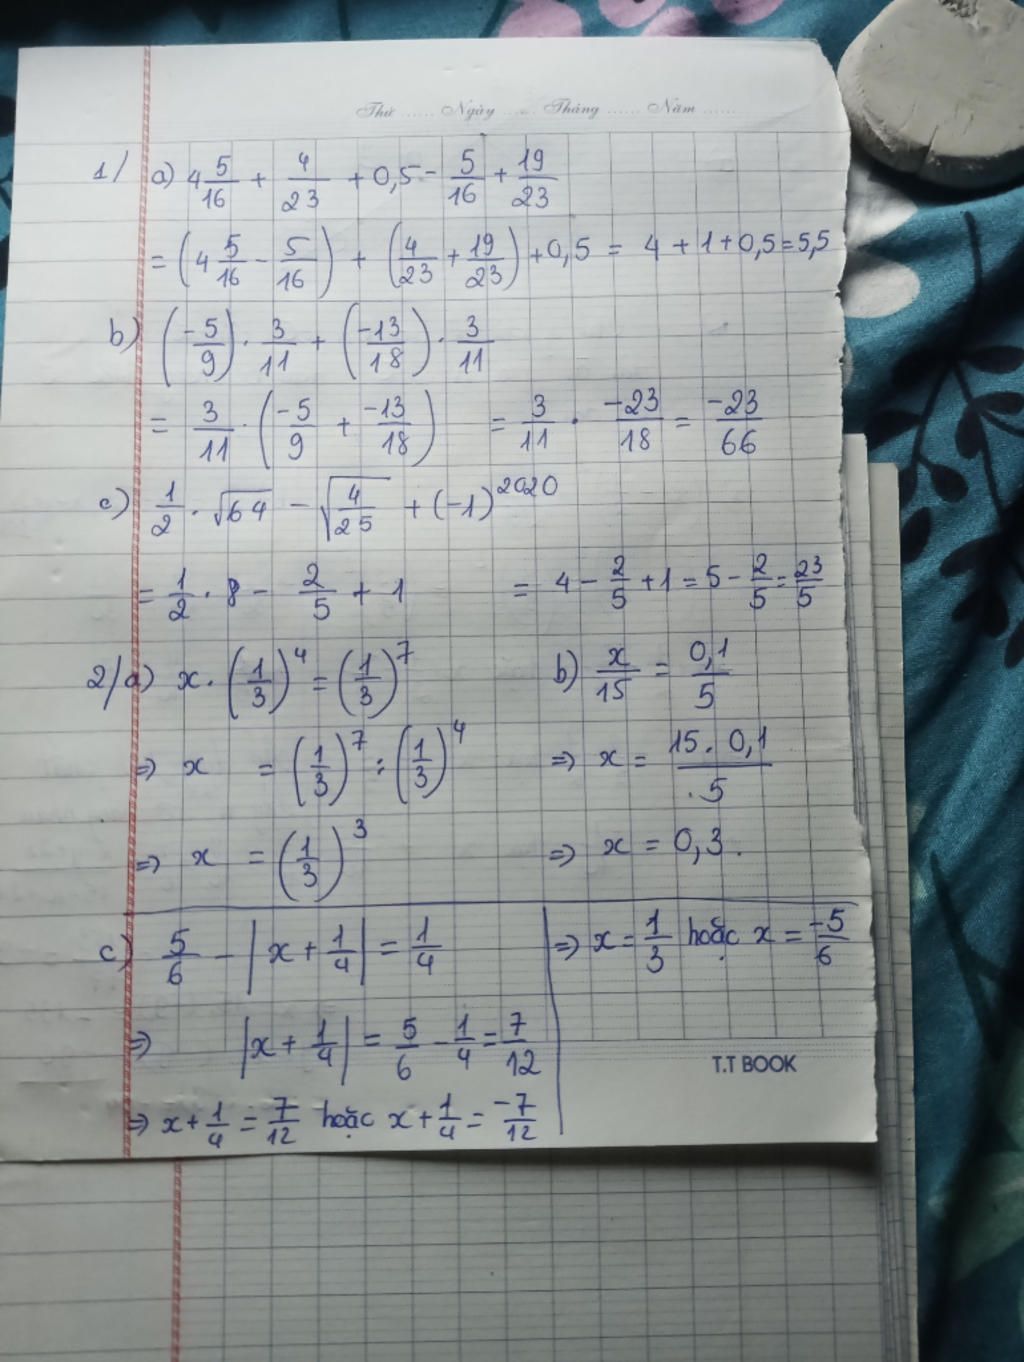 Thứ ...... Ngày ...... Tháng ...... Năm ......
1/ a) 4 5/16 + 4/23 + 0,5 - 5/16 + 19/23
= (4 5/16 - 5/16) + (4/23 + 19/23) + 0,5 = 4 + 1 + 0,5 = 5,5
b) (-5/9) . 3/11 + (-13/18) . 3/11
= 3/11 . (-5/9 + -13/18) = 3/11 . -23/18 = -23/66
c) 1/2 . √64 - √(4/25) + (-1)^2020
= 1/2 . 8 - 2/5 + 1 = 4 - 2/5 + 1 = 5 - 2/5 = 23/5
2/ a) x . (1/3)^4 = (1/3)^7
⇒ x = (1/3)^7 : (1/3)^4
⇒ x = (1/3)^3
b) x/15 = 0,1/5
⇒ x = 15 . 0,1/5
⇒ x = 0,3.
c) 5/6 - |x + 1/4| = 1/4
⇒ |x + 1/4| = 5/6 - 1/4 = 7/12
⇒ x + 1/4 = 7/12 hoặc x + 1/4 = -7/12
⇒ x = 1/3 hoặc x = -5/6
T.T BOOK